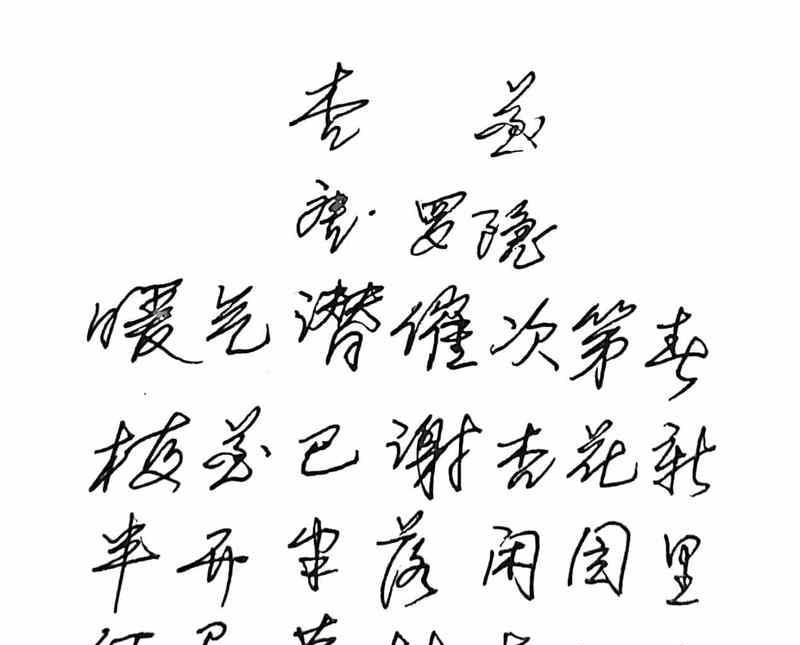 杏 花
唐·罗隐
暖气潜催次第春
梅花已谢杏花新
半开半落闲园里